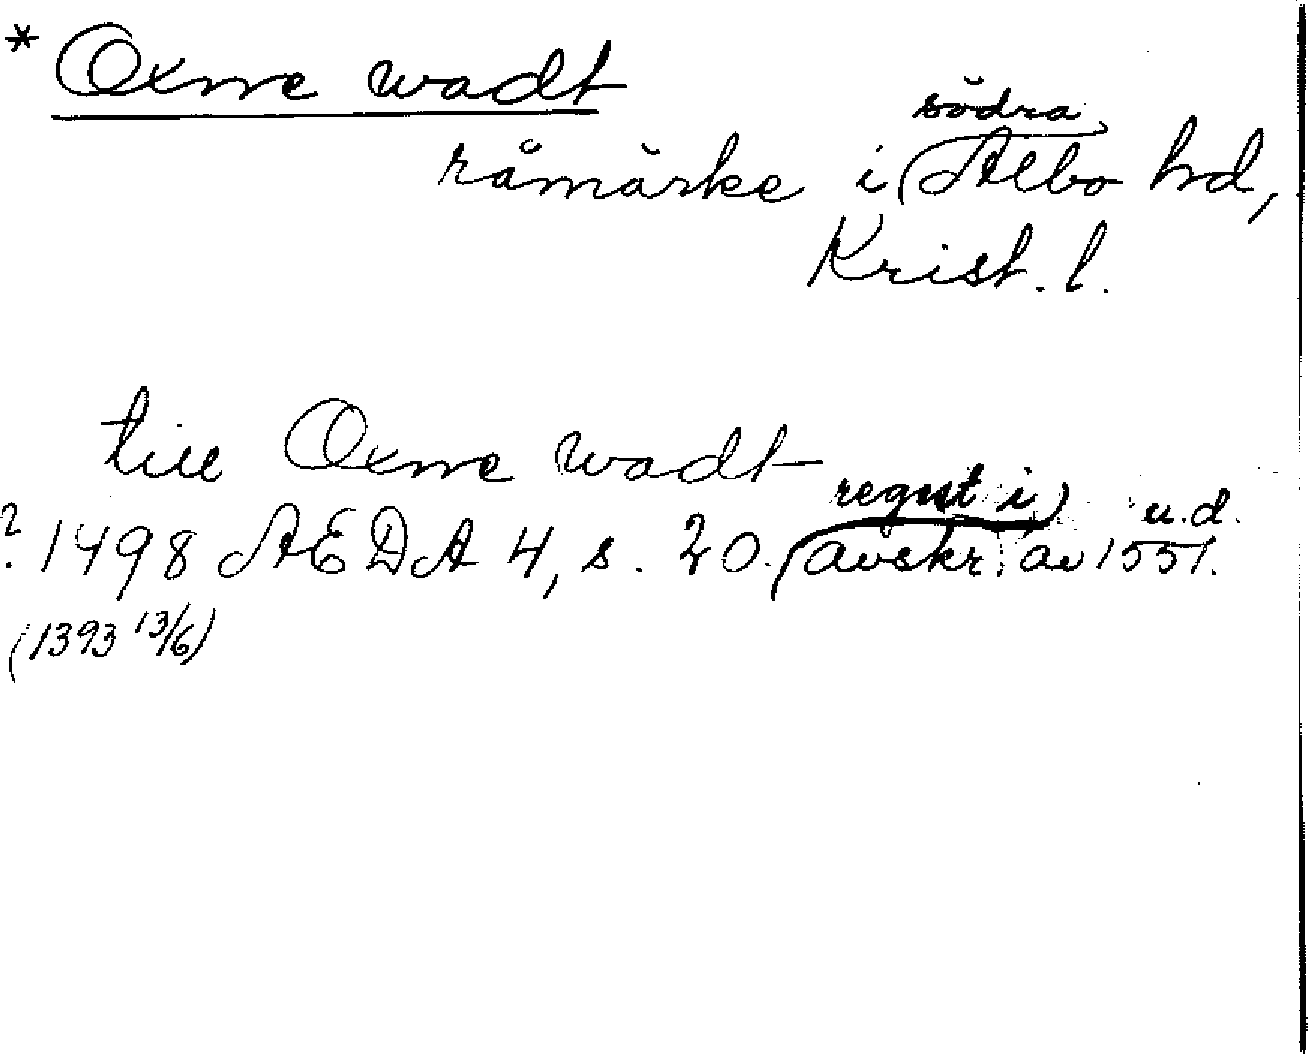 * Oxne wadt
södra
råmärke i Albo hd,
Krist. l.
till Oxne wadt
regest i u.d.
? 1498 AEDA 4, s. 20. avskr. av 1551.
(1393 13/6)